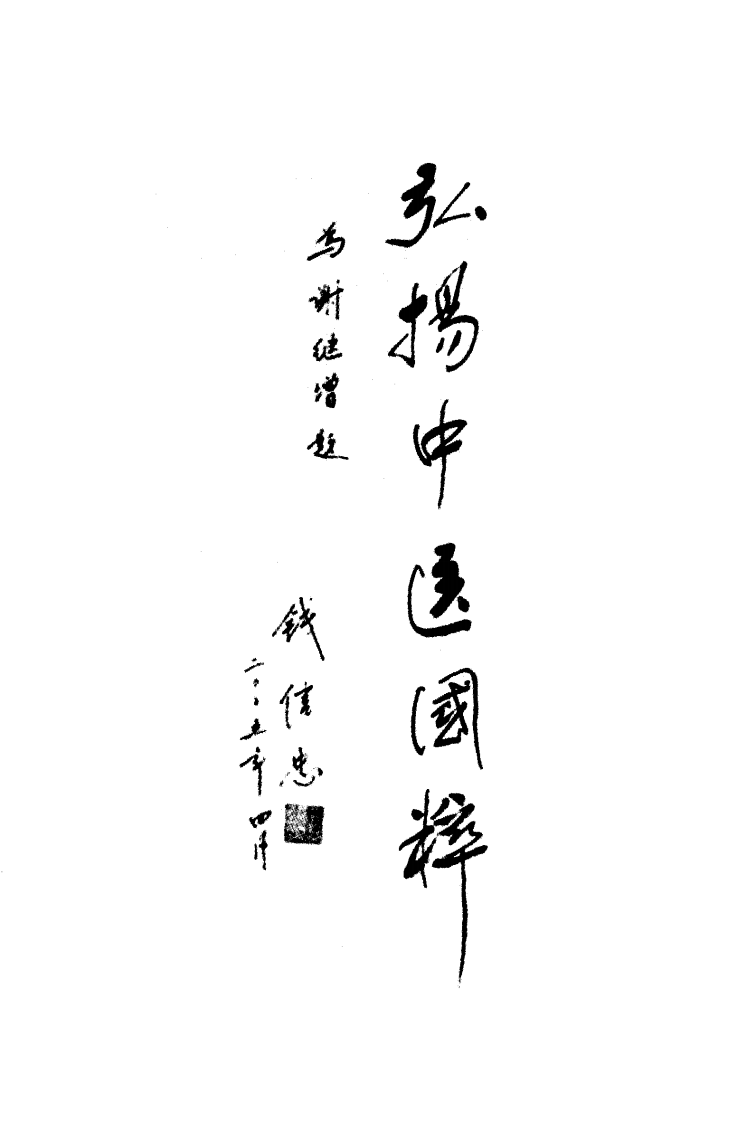 弘揚中医國粹
为谢继增题
钱信忠
二〇〇五年四月